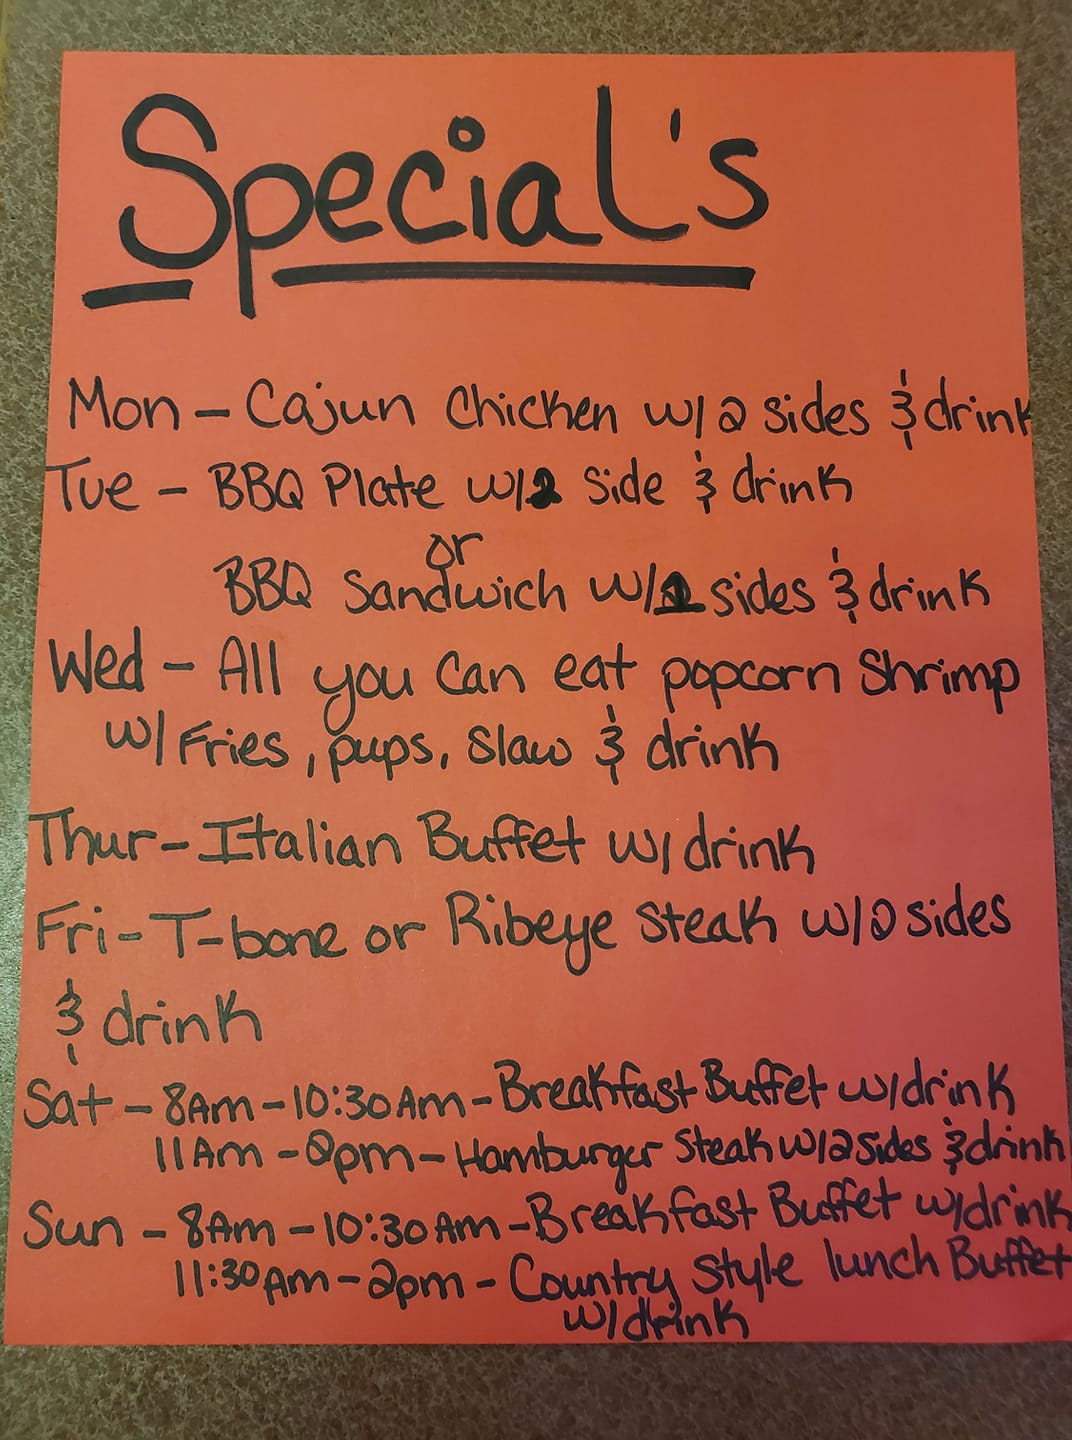 Special's
Mon - Cajun Chicken w/ 2 sides & drink
Tue - BBQ Plate w/2 side & drink
or
BBQ Sandwich w/1 sides & drink
Wed - All you can eat popcorn shrimp
w/ Fries, pups, slaw & drink
Thur - Italian Buffet w/ drink
Fri - T-bone or Ribeye steak w/ 2 sides
& drink
Sat - 8Am - 10:30Am - Breakfast Buffet w/drink
11Am - 2pm - Hamburger steak w/2 sides & drink
Sun - 8Am - 10:30Am - Breakfast Buffet w/drink
11:30Am - 2pm - Country style lunch Buffet
w/drink